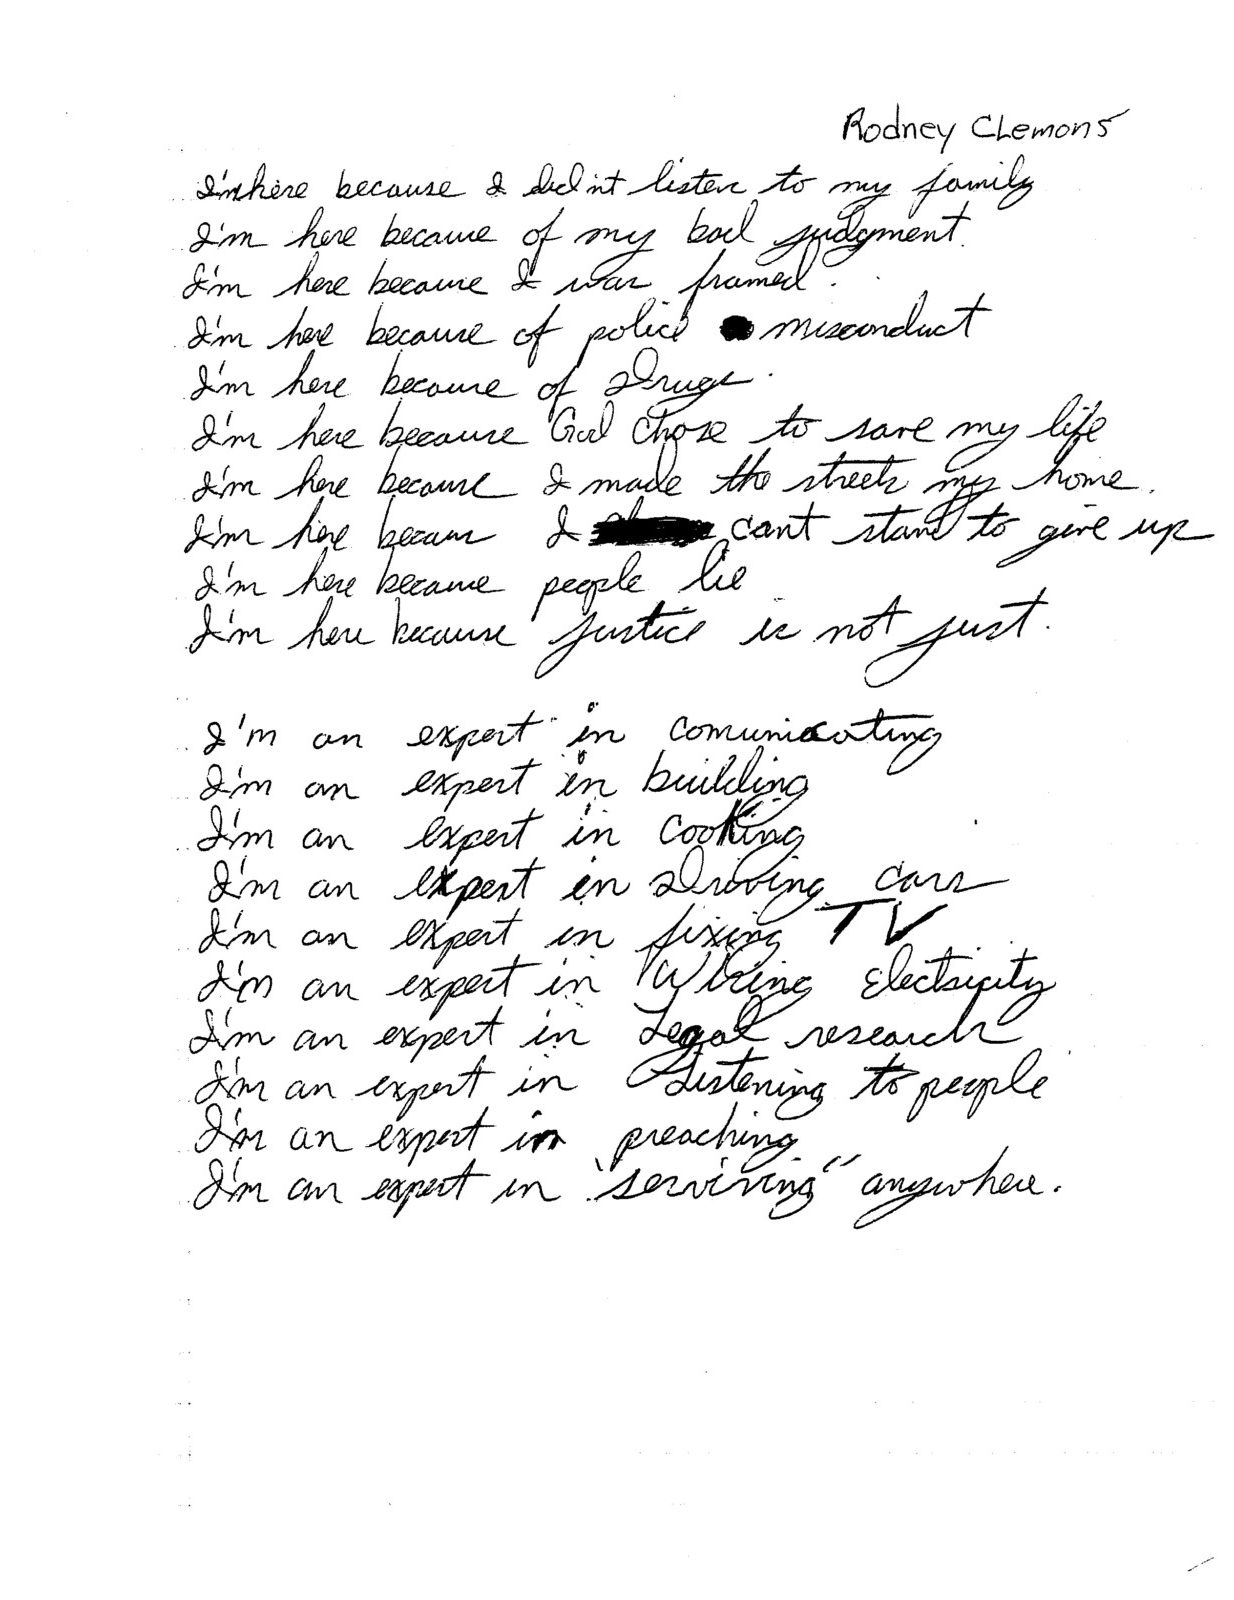 Rodney CLemons
I'm here because I did'nt listen to my family
I'm here because of my bad judgment.
I'm here because I was framed.
I'm here because of police misconduct
I'm here because of Drugs.
I'm here because God chose to save my life
I'm here because I made the streets my home.
I'm here because I cant stand to give up
I'm here because people lie
I'm here because justice is not just.
I'm an expert in comunicating
I'm an expert in building
I'm an expert in cooking
I'm an expert in Driving cars
I'm an expert in fixing TV
I'm an expert in Wiring Electricity
I'm an expert in Legal research
I'm an expert in Listening to people
I'm an expert in preaching
I'm an expert in "serviving" anywhere.